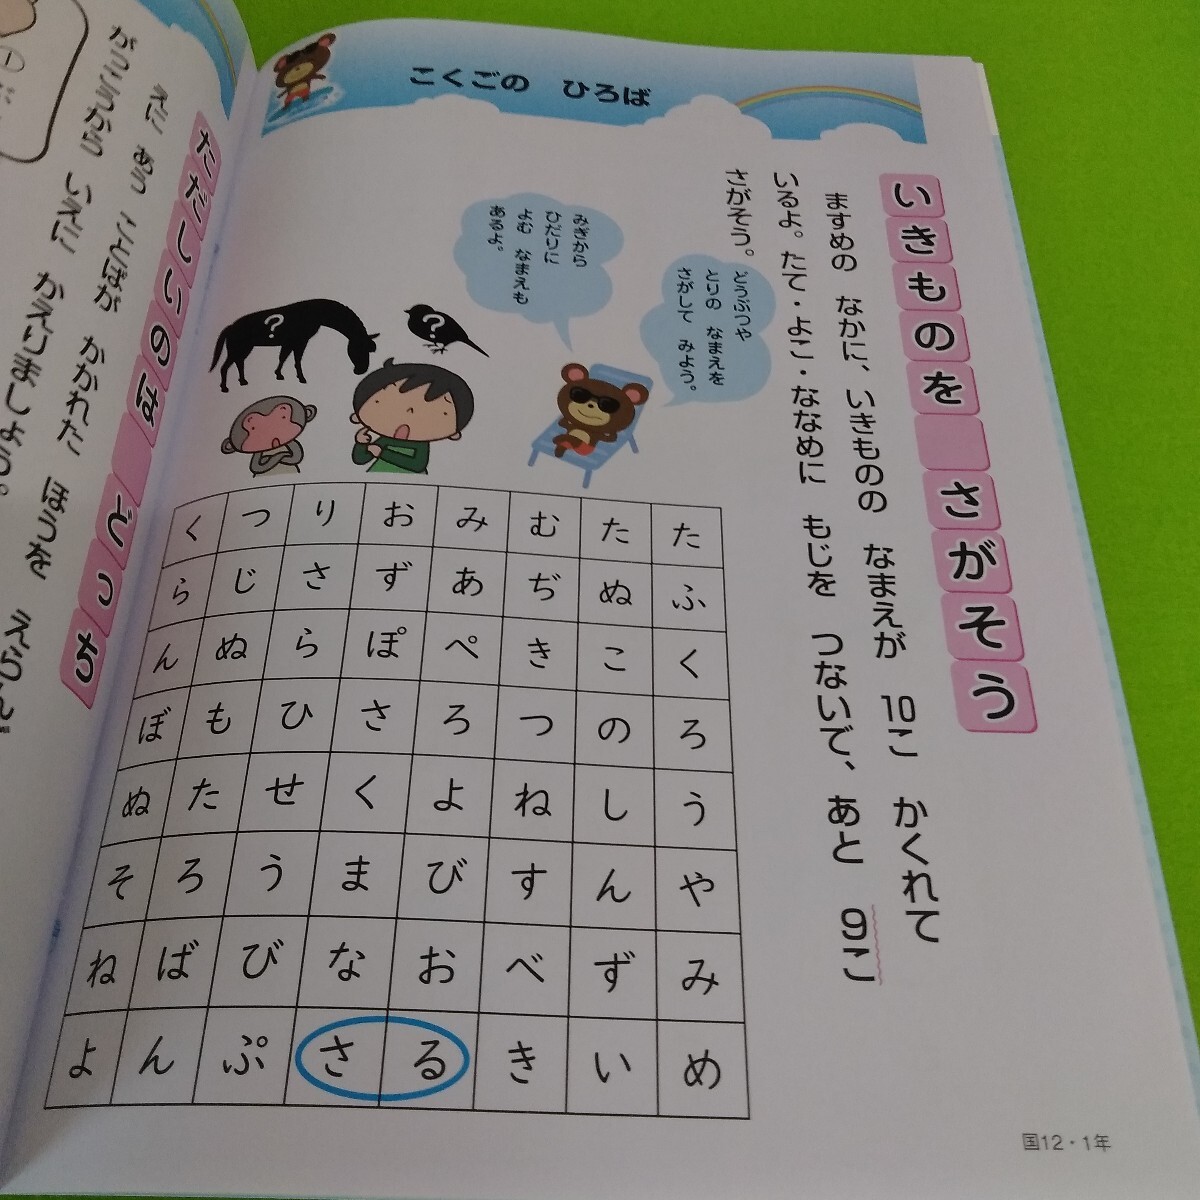 こくごの ひろば
いきものを さがそう
ますめの なかに、いきものの なまえが 10こ かくれて
いるよ。たて・よこ・ななめに もじを つないで、あと 9こ
さがそう。
どうぶつや
とりの なまえを
さがして みよう。
みぎから
ひだりに
よむ なまえも
あるよ。
?
?
く つ り お み む た た
ら じ さ ず あ ぢ ぬ ふ
ん ぬ ら ぽ ぺ き こ く
ぼ も ひ さ ろ つ の ろ
ぬ た せ く よ ね し う
そ ろ う ま び す ん や
ね ば び な お べ ず み
よ ん ぷ さ る き い め
国12・1年
ただしいのは どっち
えに あう ことばが かかれた ほうを えらん
がっこうから いえに かえりましょう。
①